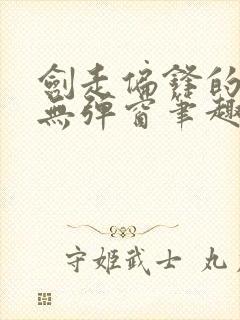 劍走偏鋒的
無彈窗筆趣
守姬武士 丸